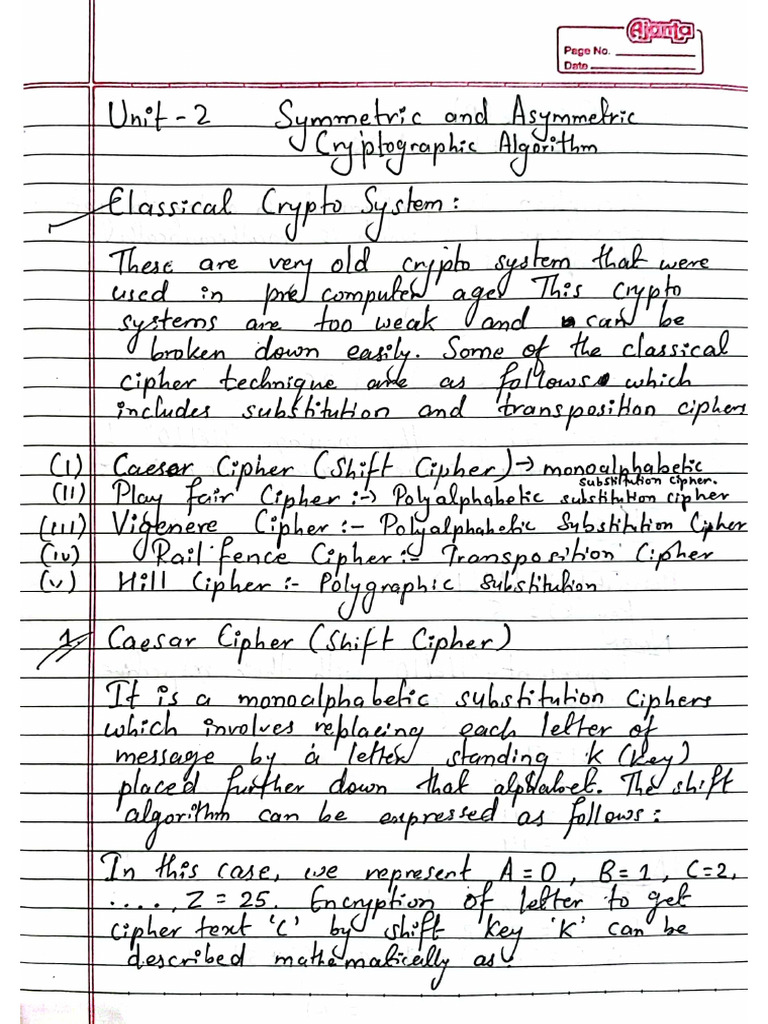 Ajanta
Page No.
Date
Unit-2 Symmetric and Asymmetric
Cryptographic Algorithm
Classical Crypto System:
These are very old crypto system that were
used in pre computer age. This crypto
systems are too weak and can be
broken down easily. Some of the classical
cipher technique are as follows which
includes substitution and transposition ciphers
(I) Caeser Cipher (Shift Cipher) → monoalphabetic
substitution cipher.
(II) Play fair Cipher :→ Polyalphabetic substitution cipher
(III) Vigenere Cipher :- Polyalphabetic Substitution Cipher
(iv) Rail fence Cipher :- Transposition Cipher
(v) Hill Cipher :- Polygraphic substitution
1. Caesar Cipher (Shift Cipher)
It is a monoalphabetic substitution ciphers
which involves replacing each letter of
message by a letter standing k (key)
placed further down that alphabet. The shift
algorithm can be expressed as follows:
In this case, we represent A=0, B=1, C=2,
...., Z = 25. Encryption of letter to get
cipher text 'C' by shift key 'K' can be
described mathematically as: